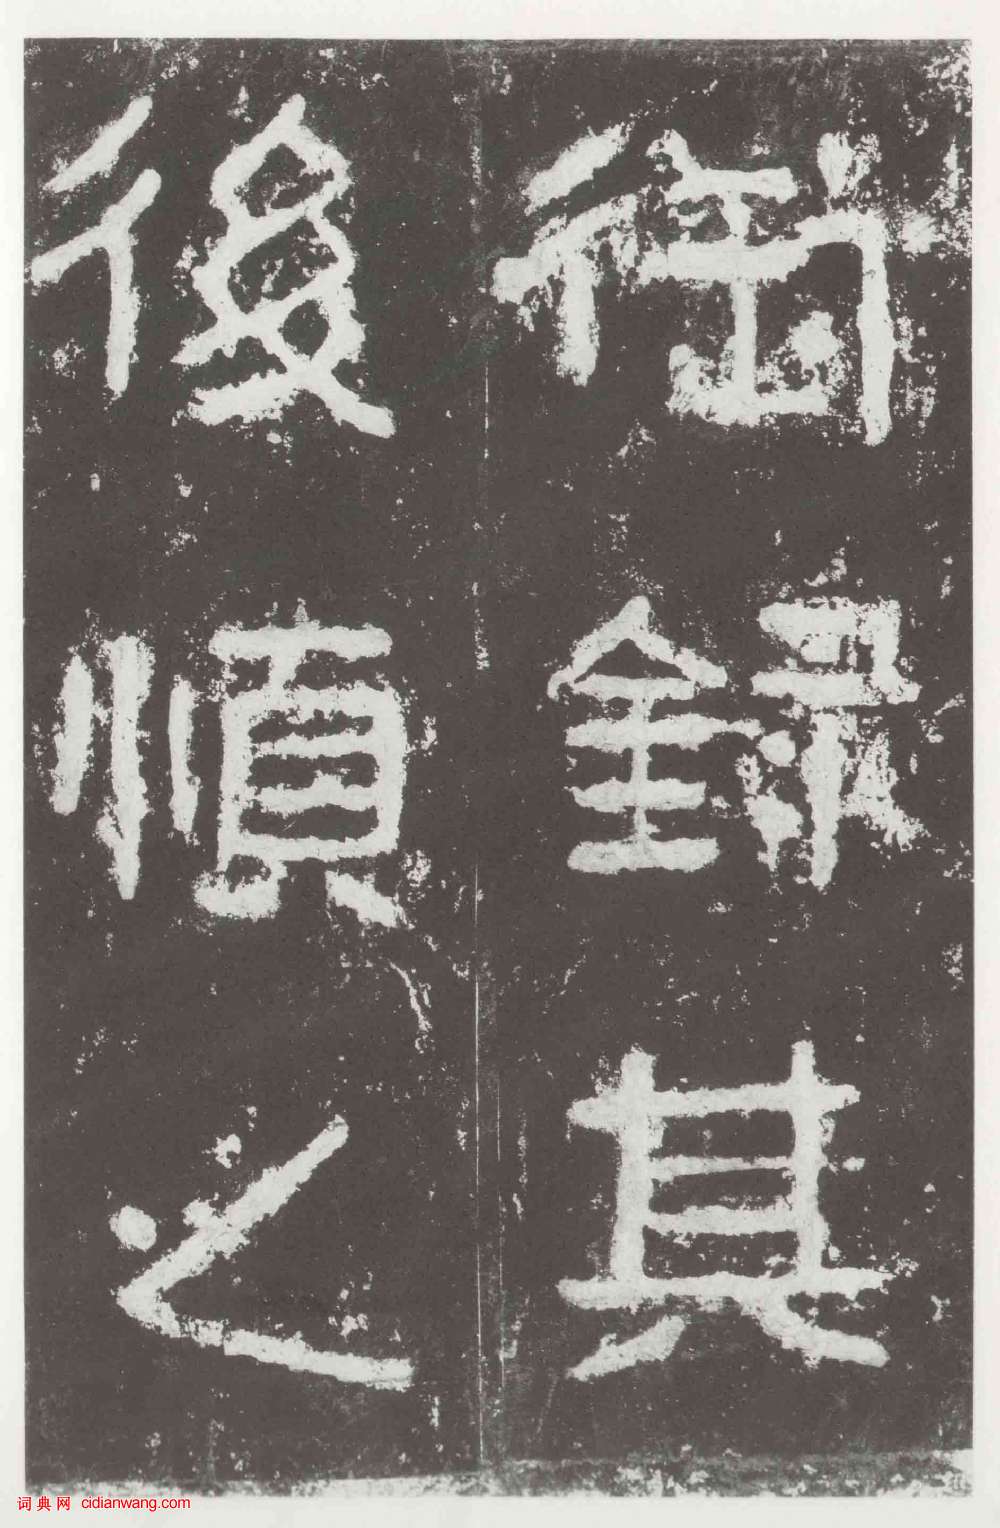 御錄其
後順之
词典网 cidianwang.com